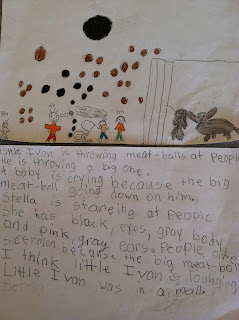 Little Ivan is throwing meat-balls at people
He is throving a big one.
A baby is crying because the big
meat-ball is going down on him.
Stella is stareing at people
She has black, eyes, gray body
and pink, gray ears. People are
because the big meat-ball
I think little Ivan is
Little Ivan was in a mall